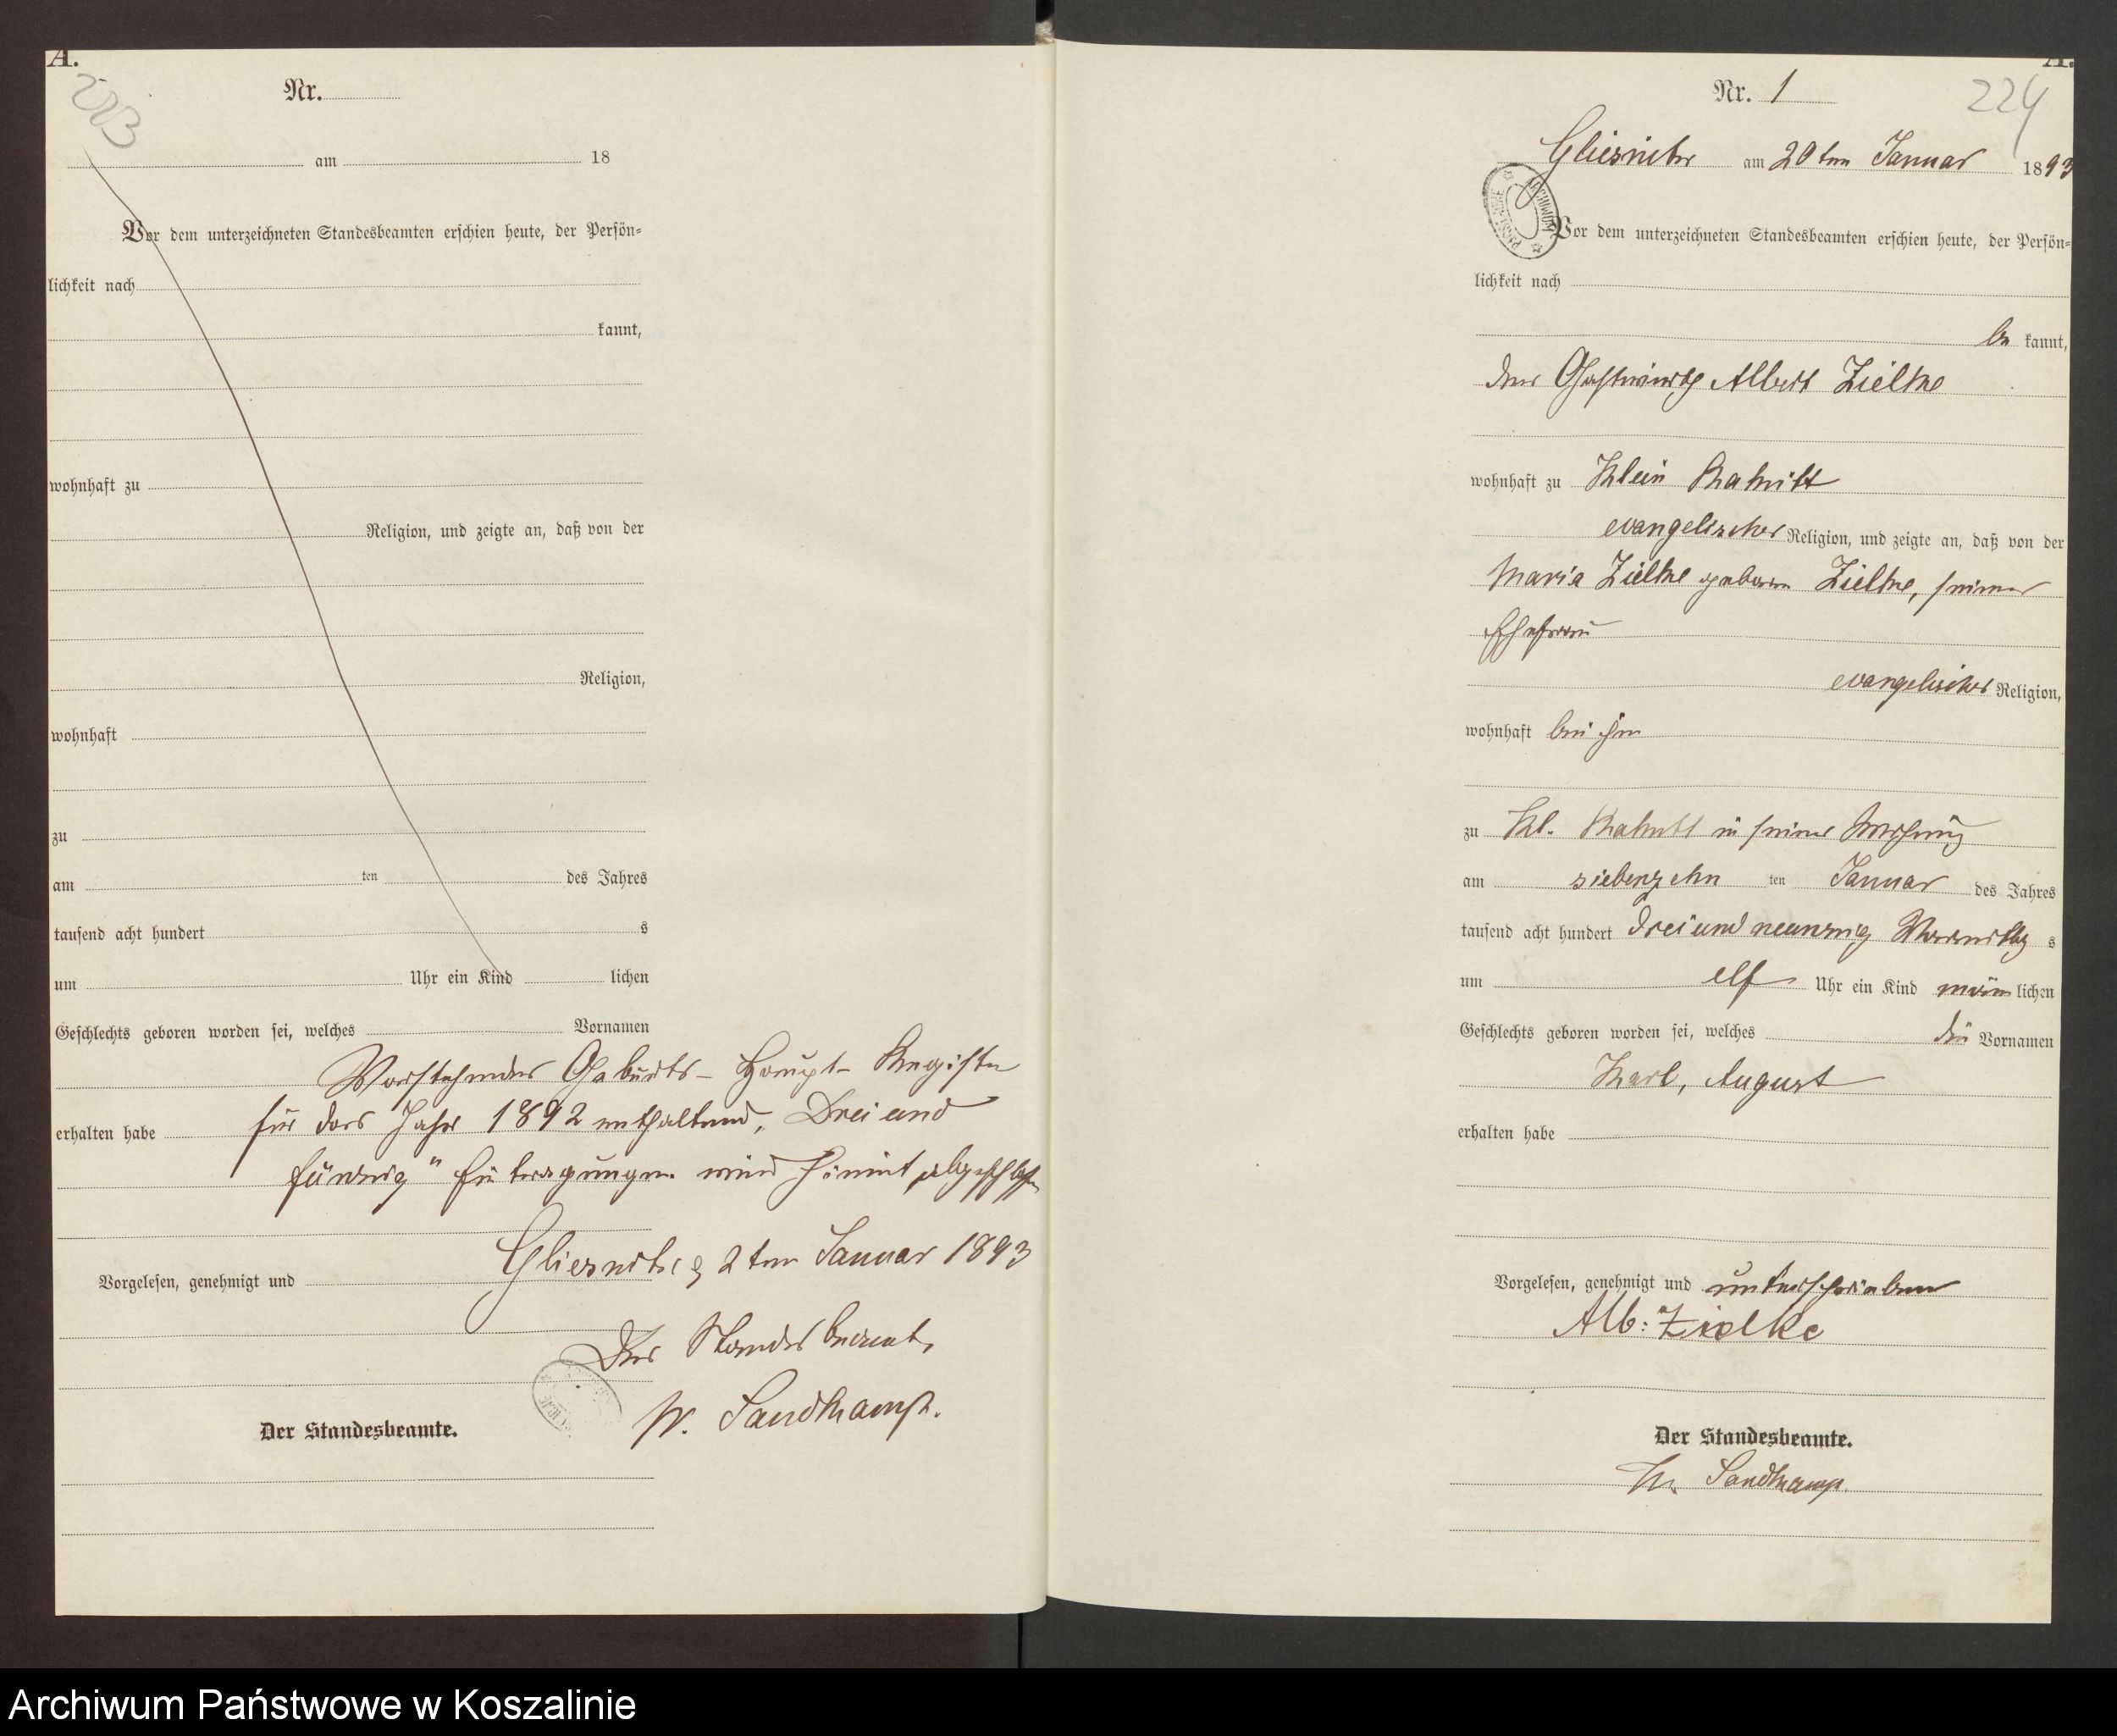 A.
223
Nr.
am 18
Vor dem unterzeichneten Standesbeamten erschien heute, der Persön-
lichkeit nach
kannt,
wohnhaft zu
Religion, und zeigte an, daß von der
Religion,
wohnhaft
zu
am ten des Jahres
tausend acht hundert s
um Uhr ein Kind lichen
Geschlechts geboren worden sei, welches Vornamen
Vorstehendes Geburts- Haupt- Register
für das Jahr 1892 enthaltend, Drei und
erhalten habe
" Eintragungen wird hiermit abgeschlossen
2ten Januar 1893
Vorgelesen, genehmigt und
Der Standesbeamte,
W. Sandkamp.
Der Standesbeamte.
A.
Nr. 1
224
am 20ten Januar 1893
Vor dem unterzeichneten Standesbeamten erschien heute, der Persön-
lichkeit nach
be kannt,
der Gastwirth Albert Zielke
wohnhaft zu Klein
evangelischer Religion, und zeigte an, daß von der
Maria Zielke geborene Zielke, seiner
Ehefrau
evangelischer Religion,
wohnhaft bei ihm
zu Kl. in seiner Wohnung
am siebenzehn ten Januar des Jahres
tausend acht hundert drei und neunzig Vormittag s
um elf Uhr ein Kind männ lichen
Geschlechts geboren worden sei, welches die Vornamen
Karl, August
erhalten habe
Vorgelesen, genehmigt und unterschrieben
Alb: Zielke
Der Standesbeamte.
Sandkamp.
Archiwum Państwowe w Koszalinie